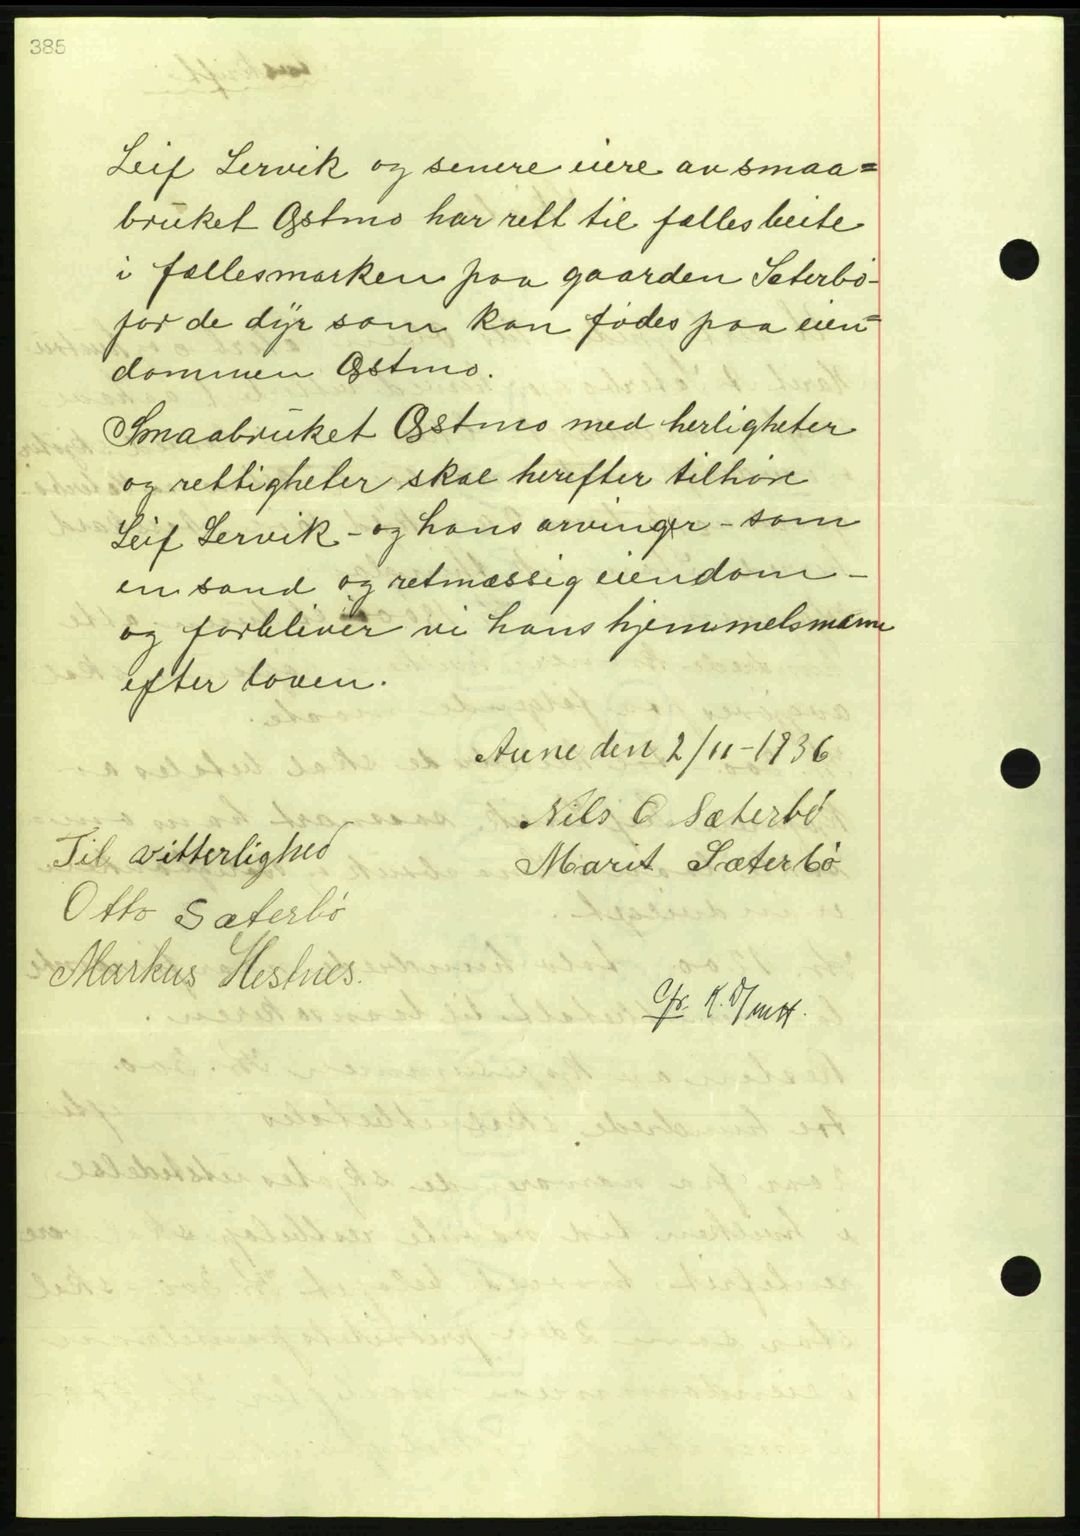 385
Leif Lervik og senere eiere av smaa=
bruket Østmo har rett til fælles beite
i fællesmarken paa gaarden Sæterbö-
for de dyr som kan fødes paa eien=
dommen Østmo.
Smaabruket Østmo med herligheter
og rettigheter skal herefter tilhöre
Leif Lervik - og hans arvinger - som
en sand og retmæssig eiendom -
og forbliver vi hans hjemmelsmænn
efter loven.
Aune den 2/11-1936
Nils O Sæterbö
Marit Sæterbö
Til vitterlighed
Otto Sæterbö
Markus Hestnes.